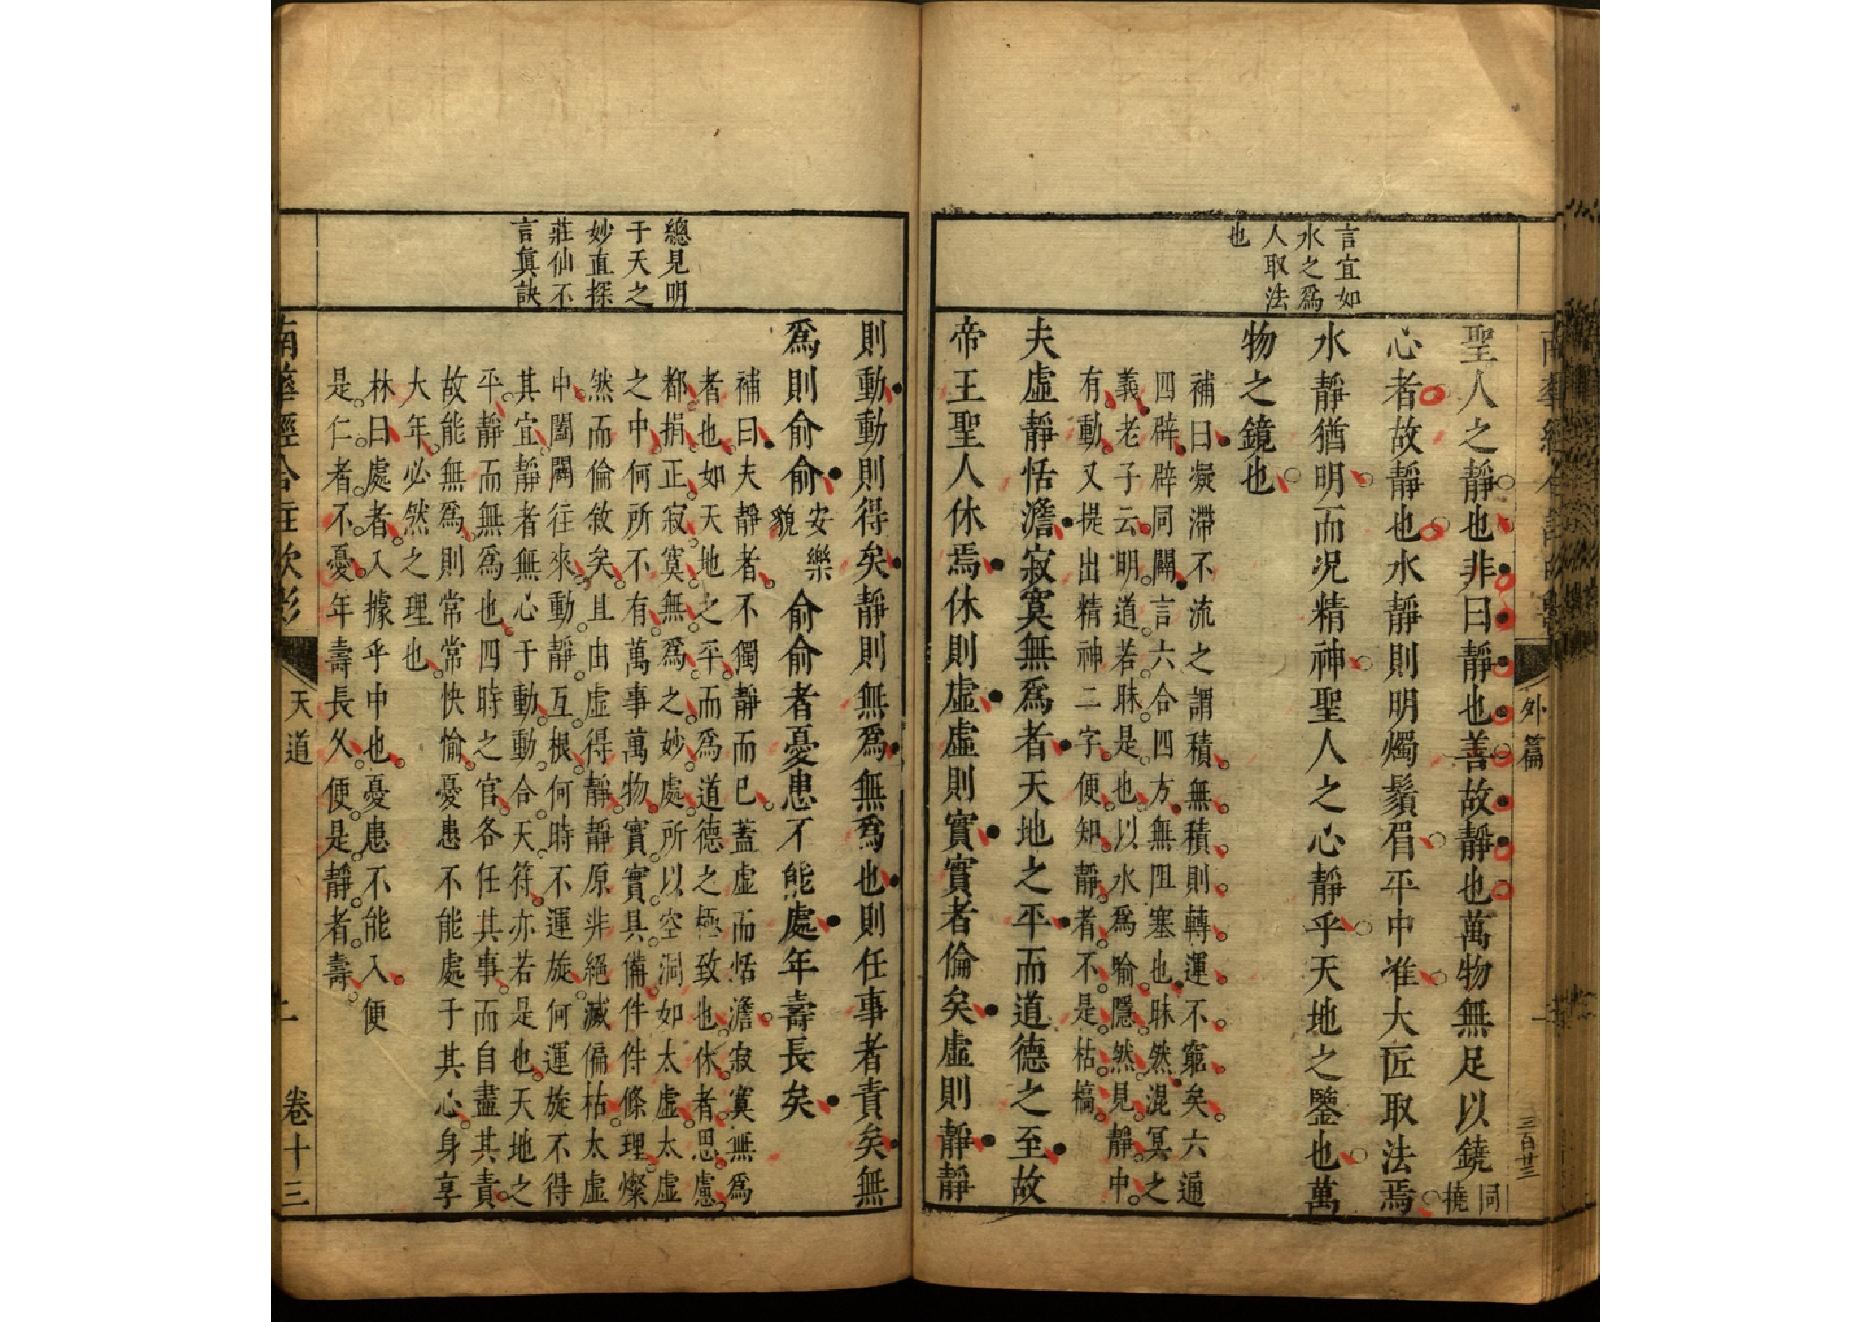 外篇
三百廿三
言宜如
水之爲
人取法
也
聖人之靜也非曰靜也善故靜也萬物無足以鐃同撓
心者故靜也水靜則明燭鬚眉平中准大匠取法焉
水靜猶明而况精神聖人之心靜乎天地之鑒也萬
物之鏡也
補曰凝滯不流之謂積無積則轉運不窮矣六通
四辟辟同闢言六合四方無阻塞也昧然混冥之
義老子云明道若昧是也以水爲喻隱然見靜中
有動又提出精神二字便知靜者不是枯槁
夫虛靜恬澹寂寞無爲者天地之平而道德之至故
帝王聖人休焉休則虛虛則實實者倫矣虛則靜靜
總見明
于天之
妙直探
莊仙不
言眞訣
則動動則得矣靜則無爲無爲也則任事者責矣無
爲則俞俞安樂貌俞俞者憂患不能處年壽長矣
補曰夫靜者不獨靜而已蓋虛而恬澹寂寞無爲
者也如天地之平而爲道德之極致也休者思慮
都捐正寂寞無爲之妙處所以空洞如太虛太虛
之中何所不有萬事萬物實實具備件件條理燦
然而倫敘矣且由虛得靜靜原非絕滅偏枯太虛
中闔闢往來動靜互根何時不運旋何運旋不得
其宜靜者無心于動動合天符亦若是也天地之
平靜而無爲也四時之官各任其事而自盡其責
故能無爲則常常快愉憂患不能處于其心身享
大年必然之理也
林曰處者入據乎中也憂患不能入便
是仁者不憂年壽長久便是靜者壽
南華經合註吹影
天道
卷十三